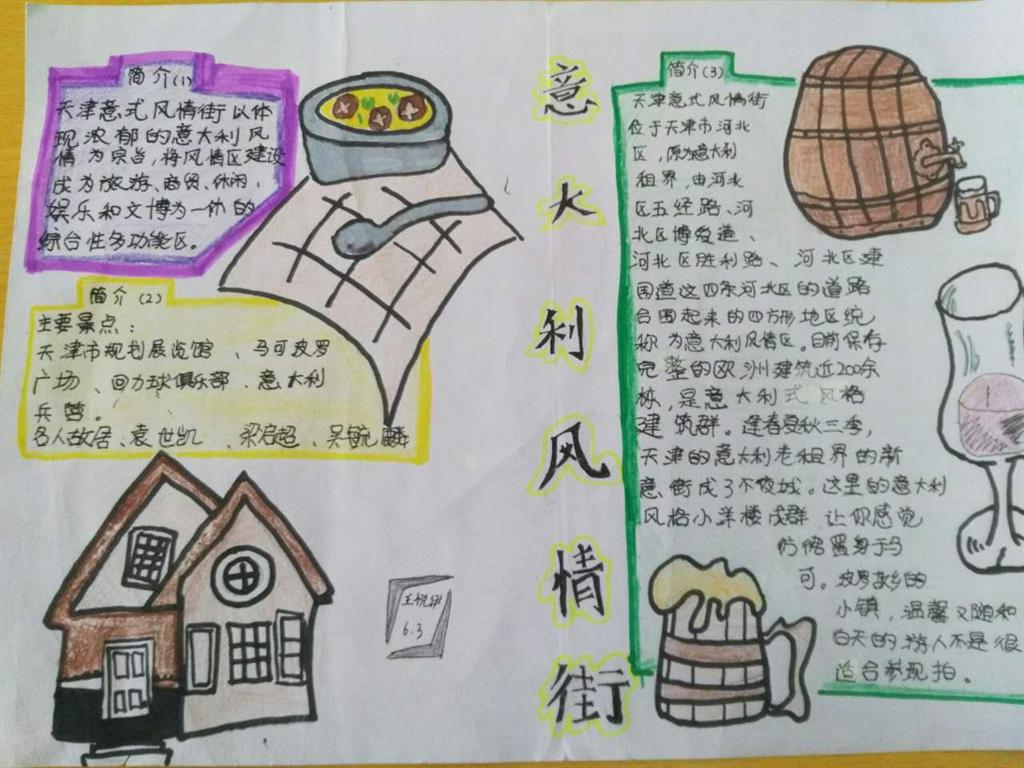 简介(1)
天津意式风情街以体
现浓郁的意大利风
情为宗旨,将风情区建设
成为旅游、商贸、休闲、
娱乐和文博为一体的
综合性多功能区。
简介(2)
主要景点:
天津市规划展览馆、马可波罗
广场、回力球俱乐部、意大利
兵营。
名人故居、袁世凯、梁启超、吴毓麟
王悦
6.3
意大利风情街
简介(3)
天津意式风情街
位于天津市河北
区,原为意大利
租界,由河北
区五经路、河
北区博爱道、
河北区胜利路、河北区建
国道这四条河北区的道路
合围起来的四方形地区统
称为意大利风情区。目前保存
完整的欧洲建筑近200余
栋,是意大利式风格
建筑群。逢春夏秋三季,
天津的意大利老租界的新
意街成了不夜城。这里的意大利
风格小洋楼成群 让你感觉
仿偖置身于马
可。波罗故乡的
小镇,温馨又随和
白天的游人不是很
适合参现拍。